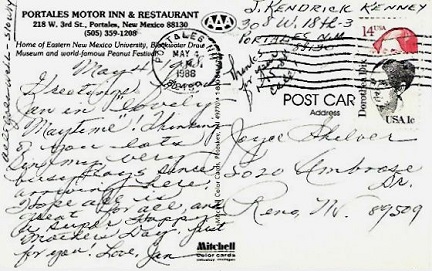 PORTALES MOTOR INN & RESTAURANT
218 W. 3rd St., Portales, New Mexico 88130
(505) 359-1208
Home of Eastern New Mexico University, Blackwater Draw
Museum and world-famous Peanut Festival
May 7th, 1988
Jan in "Lovely
Maytime"! Thinking
of you lots
very
busy days since
arriving here.
Hope all is
great for all, and
a super Happy
Mother's Day, just
for you. Love, Jan
AAA
PORTALES NM
MAY
1988
88130
J. KENDRICK KENNEY
308 W, 18th-3
PORTALES, N.M.
88130
Thanks
for your
14¢ USA
USA 1c
POST CARD
Address
Joyce Shelver
5020 Ambrose
Dr.
Reno, NV. 89509
Mitchell
color cards